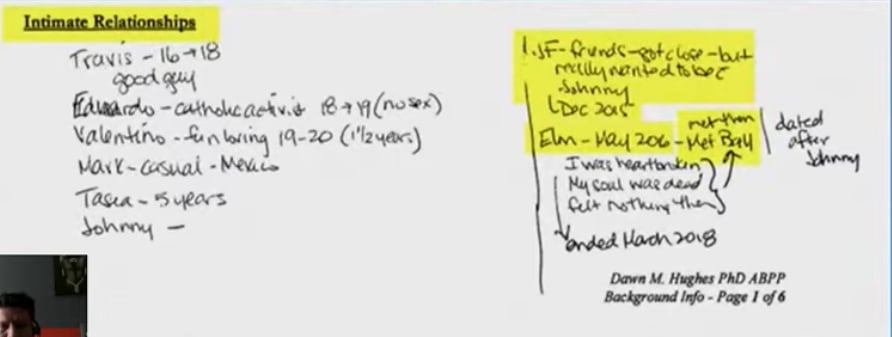 Intimate Relationships
Travis - 16 → 18
good guy
Eduardo - catholic activist 18 → 19 (no sex)
Valentino - fun loving 19-20 (1 1/2 years)
Mark - casual - Mexico
Tasya - 5 years
Johnny -
1. JF - friends - got close - but
really wanted to be c
Johnny
Dec 2015
Elon - May 206 - Met Ball
met then
dated
after
Johnny
I was heartbroken
My soul was dead
felt nothing then
ended March 2018
Dawn M. Hughes PhD ABPP
Background Info - Page 1 of 6